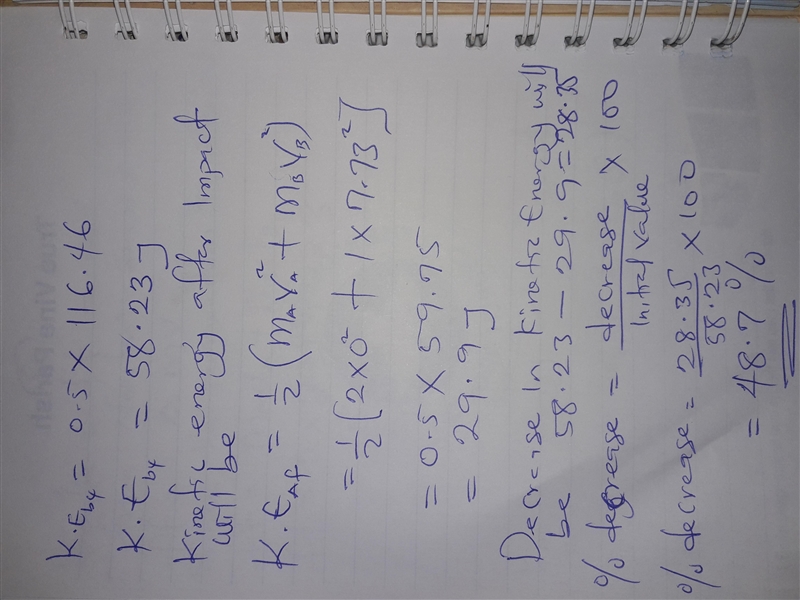 K.E_b4 = 0.5 × 116.46
K.E_b4 = 58.23J
Kinetic energy after Impact
will be
K.E_Af = 1/2 (M_A V_A^2 + M_B V_B^2)
= 1/2 [2×0^2 + 1×7.73^2]
= 0.5 × 59.75
= 29.9J
Decrease In Kinetic Energy will
be 58.23 − 29.9 = 28.35
% decrease = decrease / Initial value × 100
% decrease = 28.35 / 58.23 × 100
= 48.7 %
True Vine Parish